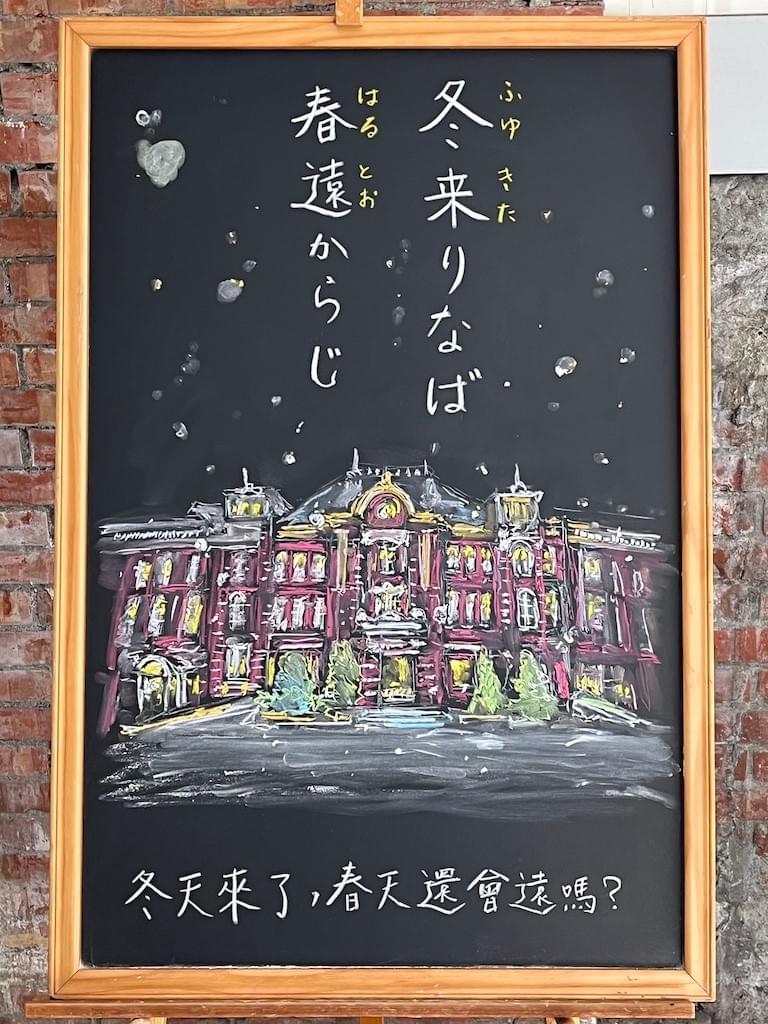 冬来りなば
ふゆ きた
春遠からじ
はる とお
冬天來了,春天還會遠嗎?